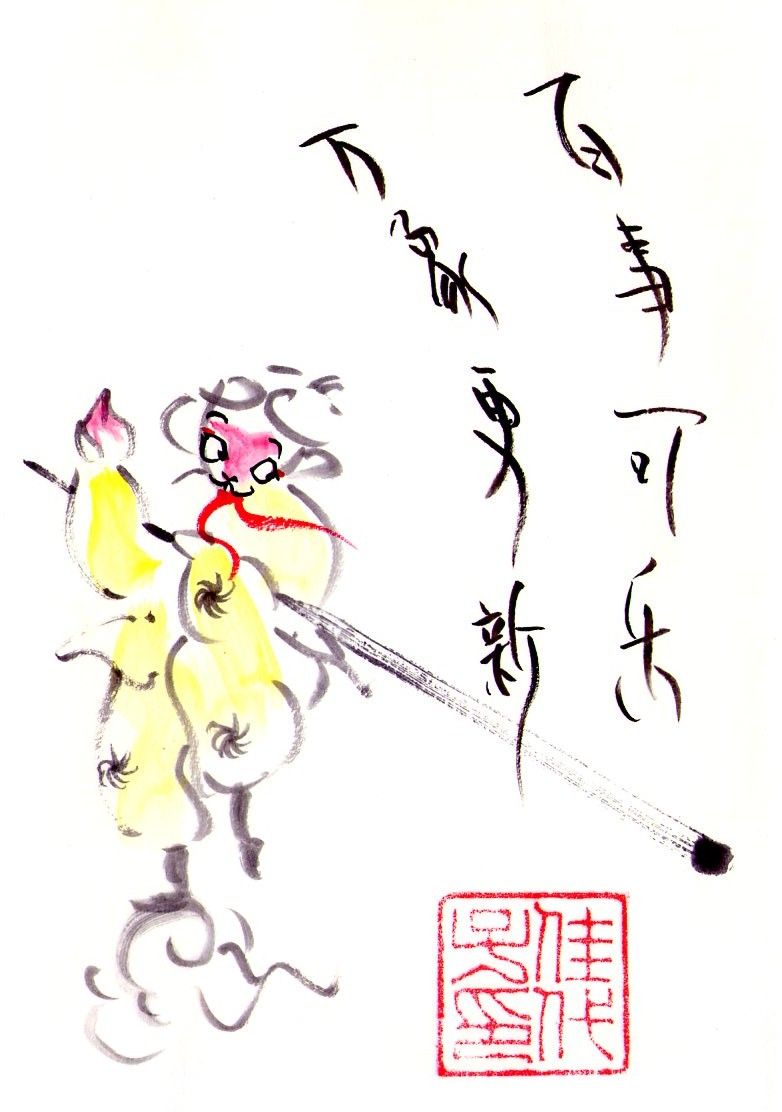 百事可乐
万象更新
佳代
印